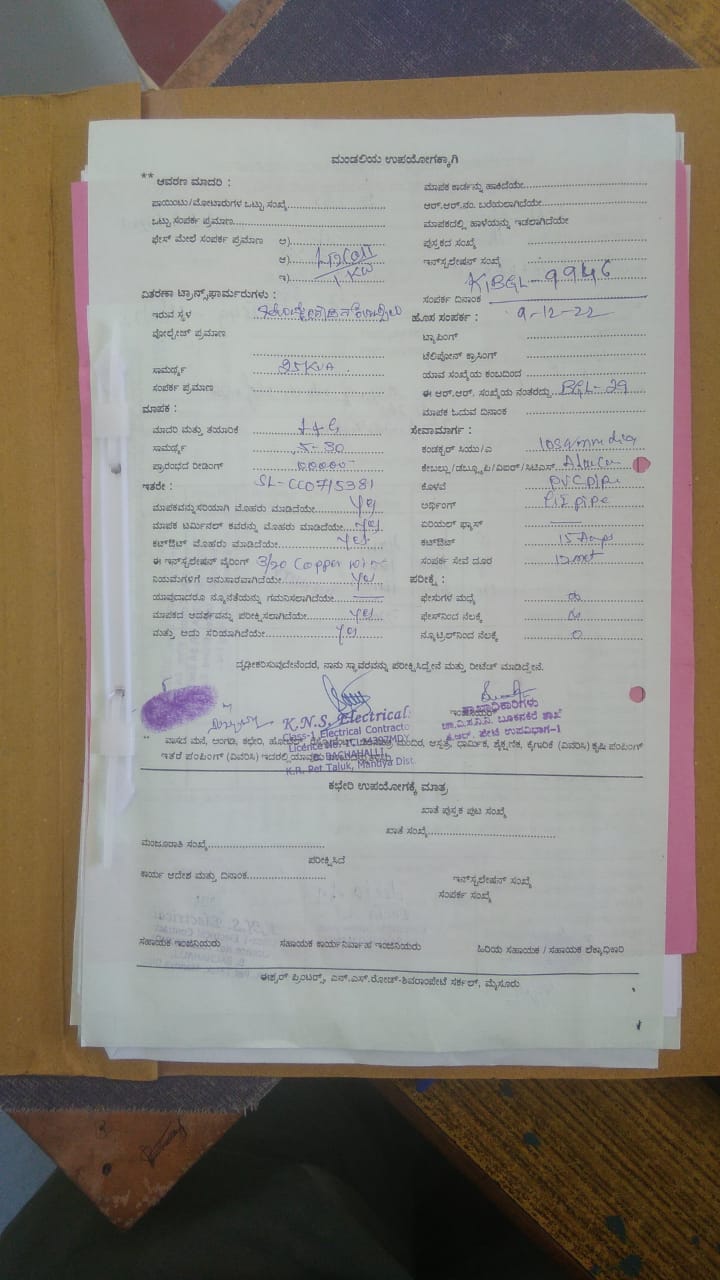 ಮಂಡಲಿಯ ಉಪಯೋಗಕ್ಕಾಗಿ
** ಆವರಣ ಮಾದರಿ :
ಪಾಯಿಂಟು/ಮೋಟಾರುಗಳ ಒಟ್ಟು ಸಂಖ್ಯೆ
ಒಟ್ಟು ಸಂಪರ್ಕ ಪ್ರಮಾಣ
ಫೇಸ್ ಮೇಲೆ ಸಂಪರ್ಕ ಪ್ರಮಾಣ ಅ)
ಆ)
ಇ) 1 KW
ವಿತರಣಾ ಟ್ರಾನ್ಸ್‌ಫಾರ್ಮರುಗಳು :
ಇರುವ ಸ್ಥಳ
ವೋಲ್ಟೇಜ್ ಪ್ರಮಾಣ
ಸಾಮರ್ಥ್ಯ 25 KVA
ಸಂಪರ್ಕ ಪ್ರಮಾಣ
ಮಾಪಕ :
ಮಾದರಿ ಮತ್ತು ತಯಾರಿಕೆ L+G
ಸಾಮರ್ಥ್ಯ 5-30
ಪ್ರಾರಂಭದ ರೀಡಿಂಗ್ 00000
ಇತರೇ : SL-CC0715381
ಮಾಪಕವನ್ನು ಸರಿಯಾಗಿ ಮೊಹರು ಮಾಡಿದೆಯೇ Yes
ಮಾಪಕ ಟರ್ಮಿನಲ್ ಕವರನ್ನು ಮೊಹರು ಮಾಡಿದೆಯೇ Yes
ಕಟ್‌ಔಟ್ ಮೊಹರು ಮಾಡಿದೆಯೇ Yes
ಈ ಇನ್‌ಸ್ಟಲೇಷನ್ ವೈರಿಂಗ್ 3/20 Copper wire
ನಿಯಮಗಳಿಗೆ ಅನುಸಾರವಾಗಿದೆಯೇ Yes
ಯಾವುದಾದರೂ ನ್ಯೂನತೆಯನ್ನು ಗಮನಿಸಲಾಗಿದೆಯೇ
ಮಾಪಕದ ಆದರ್ಶವನ್ನು ಪರೀಕ್ಷಿಸಲಾಗಿದೆಯೇ Yes
ಮತ್ತು ಅದು ಸರಿಯಾಗಿದೆಯೇ Yes
ಮಾಪಕ ಕಾರ್ಡನ್ನು ಹಾಕಿದೆಯೇ
ಆರ್.ಆರ್.ನಂ. ಬರೆಯಲಾಗಿದೆಯೇ
ಮಾಪಕದಲ್ಲಿ ಹಾಳೆಯನ್ನು ಇಡಲಾಗಿದೆಯೇ
ಪುಸ್ತಕದ ಸಂಖ್ಯೆ
ಇನ್‌ಸ್ಟಲೇಷನ್ ಸಂಖ್ಯೆ
KJBGL-9946
ಸಂಪರ್ಕ ದಿನಾಂಕ
ಹೊಸ ಸಂಪರ್ಕ : 9-12-22
ಟ್ಯಾಪಿಂಗ್
ಟೆಲಿಪೋನ್ ಕ್ರಾಸಿಂಗ್
ಯಾವ ಸಂಖ್ಯೆಯ ಕಂಬದಿಂದ
ಈ ಆರ್.ಆರ್. ಸಂಖ್ಯೆಯ ನಂತರದ್ದು BGL-29
ಮಾಪಕ ಓದುವ ದಿನಾಂಕ
ಸೇವಾಮಾರ್ಗ :
ಕಂಡಕ್ಟರ್ ಸಿಯು/ಎ 10sqmm dia
ಕೇಬಲ್ಲು/ಡಬ್ಲ್ಯೂಪಿ/ವಿಐಆರ್/ಸಿಟಿಎಸ್
ಕೊಳವೆ PVC pipe
ಅರ್ಥಿಂಗ್ GI pipe
ಏರಿಯಲ್ ಫ್ಯೂಸ್
ಕಟ್‌ಔಟ್ 15 Amps
ಸಂಪರ್ಕ ಸೇವೆ ದೂರ 12 met
ಪರೀಕ್ಷೆ :
ಫೇಸುಗಳ ಮಧ್ಯೆ ∞
ಫೇಸ್‌ನಿಂದ ನೆಲಕ್ಕೆ ∞
ನ್ಯೂಟ್ರಿಲ್‌ನಿಂದ ನೆಲಕ್ಕೆ 0
ದೃಢೀಕರಿಸುವುದೇನೆಂದರೆ, ನಾನು ಸ್ಥಾವರವನ್ನು ಪರೀಕ್ಷಿಸಿದ್ದೇನೆ ಮತ್ತು ರೀಟೆಡ್ ಮಾಡಿದ್ದೇನೆ.
K.N.S. Electrical
Class-1 Electrical Contracto
Licence No. 1CL34397MDY
D. BACHAHALLI
K.R. Pet Taluk, Mandya Dist.
ಶಾಖಾಧಿಕಾರಿಗಳು
ಚಾ.ವಿ.ಸ.ನಿ.ನಿ. ಬೂಕನಕೆರೆ ಶಾಖೆ
ಕೆ.ಆರ್. ಪೇಟೆ ಉಪವಿಭಾಗ-1
** ವಾಸದ ಮನೆ, ಅಂಗಡಿ, ಕಛೇರಿ, ಮಂದಿರ, ಆಸ್ಪತ್ರೆ, ಧಾರ್ಮಿಕ, ಶೈಕ್ಷಣಿಕ, ಕೈಗಾರಿಕೆ (ವಿವರಿಸಿ) ಕೃಷಿ ಪಂಪಿಂಗ್
ಇತರೆ ಪಂಪಿಂಗ್ (ವಿವರಿಸಿ)
ಕಛೇರಿ ಉಪಯೋಗಕ್ಕೆ ಮಾತ್ರ
ಖಾತೆ ಪುಸ್ತಕ ಪುಟ ಸಂಖ್ಯೆ
ಖಾತೆ ಸಂಖ್ಯೆ
ಮಂಜೂರಾತಿ ಸಂಖ್ಯೆ
ಪರೀಕ್ಷಿಸಿದೆ
ಕಾರ್ಯ ಆದೇಶ ಮತ್ತು ದಿನಾಂಕ
ಇನ್‌ಸ್ಟಲೇಷನ್ ಸಂಖ್ಯೆ
ಸಂಪರ್ಕ ಸಂಖ್ಯೆ
ಸಹಾಯಕ ಇಂಜಿನಿಯರು ಸಹಾಯಕ ಕಾರ್ಯನಿರ್ವಾಹ ಇಂಜಿನಿಯರು ಹಿರಿಯ ಸಹಾಯಕ / ಸಹಾಯಕ ಲೆಕ್ಕಾಧಿಕಾರಿ
ಈಶ್ವರ್ ಪ್ರಿಂಟರ್ಸ್, ಎನ್.ಎಸ್.ರೋಡ್-ಶಿವರಾಂಪೇಟೆ ಸರ್ಕಲ್, ಮೈಸೂರು